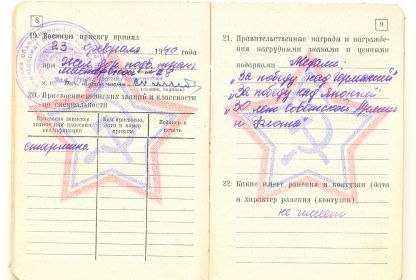 8
19. Военную присягу принял
23 февраля 1940 г.
при Жел. дор. подв. тран
№ 28
20. Присвоение воинских званий и классности
по специальности
Присвоено воинское
звание или классная
квалификация
Кем присвоено,
дата и номер
приказа
Подпись и
печать
старшина
9
21. Правительственные награды и награжде-
ния нагрудными знаками и ценными
подарками Медали:
„За победу над Германией"
„За победу над Японией"
„30 лет Советской Армии
и Флота"
22. Какие имеет ранения и контузии (дата
и характер ранения (контузии)
не имеет